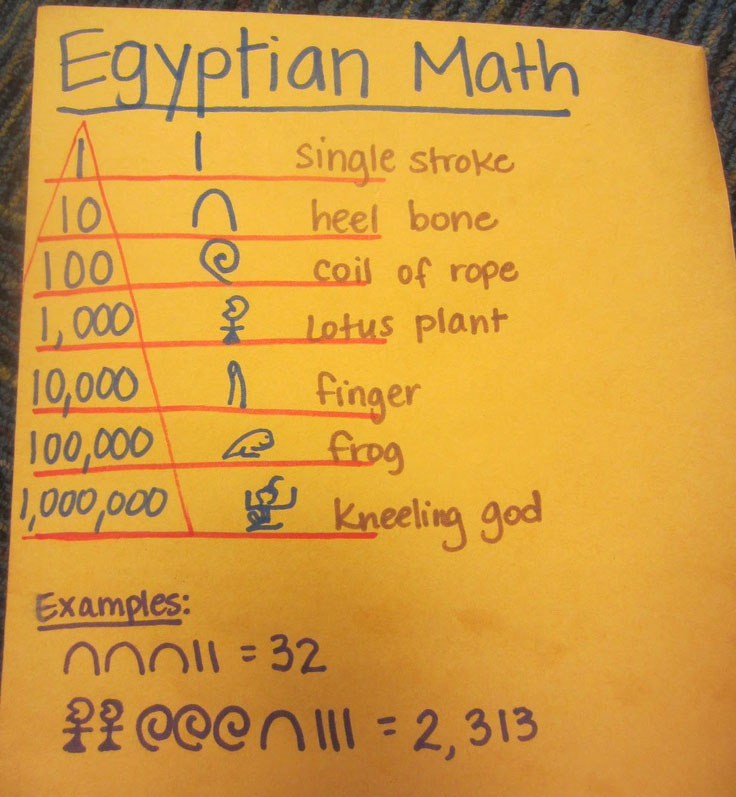 Egyptian Math
1 | single stroke
10 ∩ heel bone
100 coil of rope
1,000 Lotus plant
10,000 finger
100,000 frog
1,000,000 kneeling god
Examples:
∩∩∩|| = 32
∩||| = 2,313